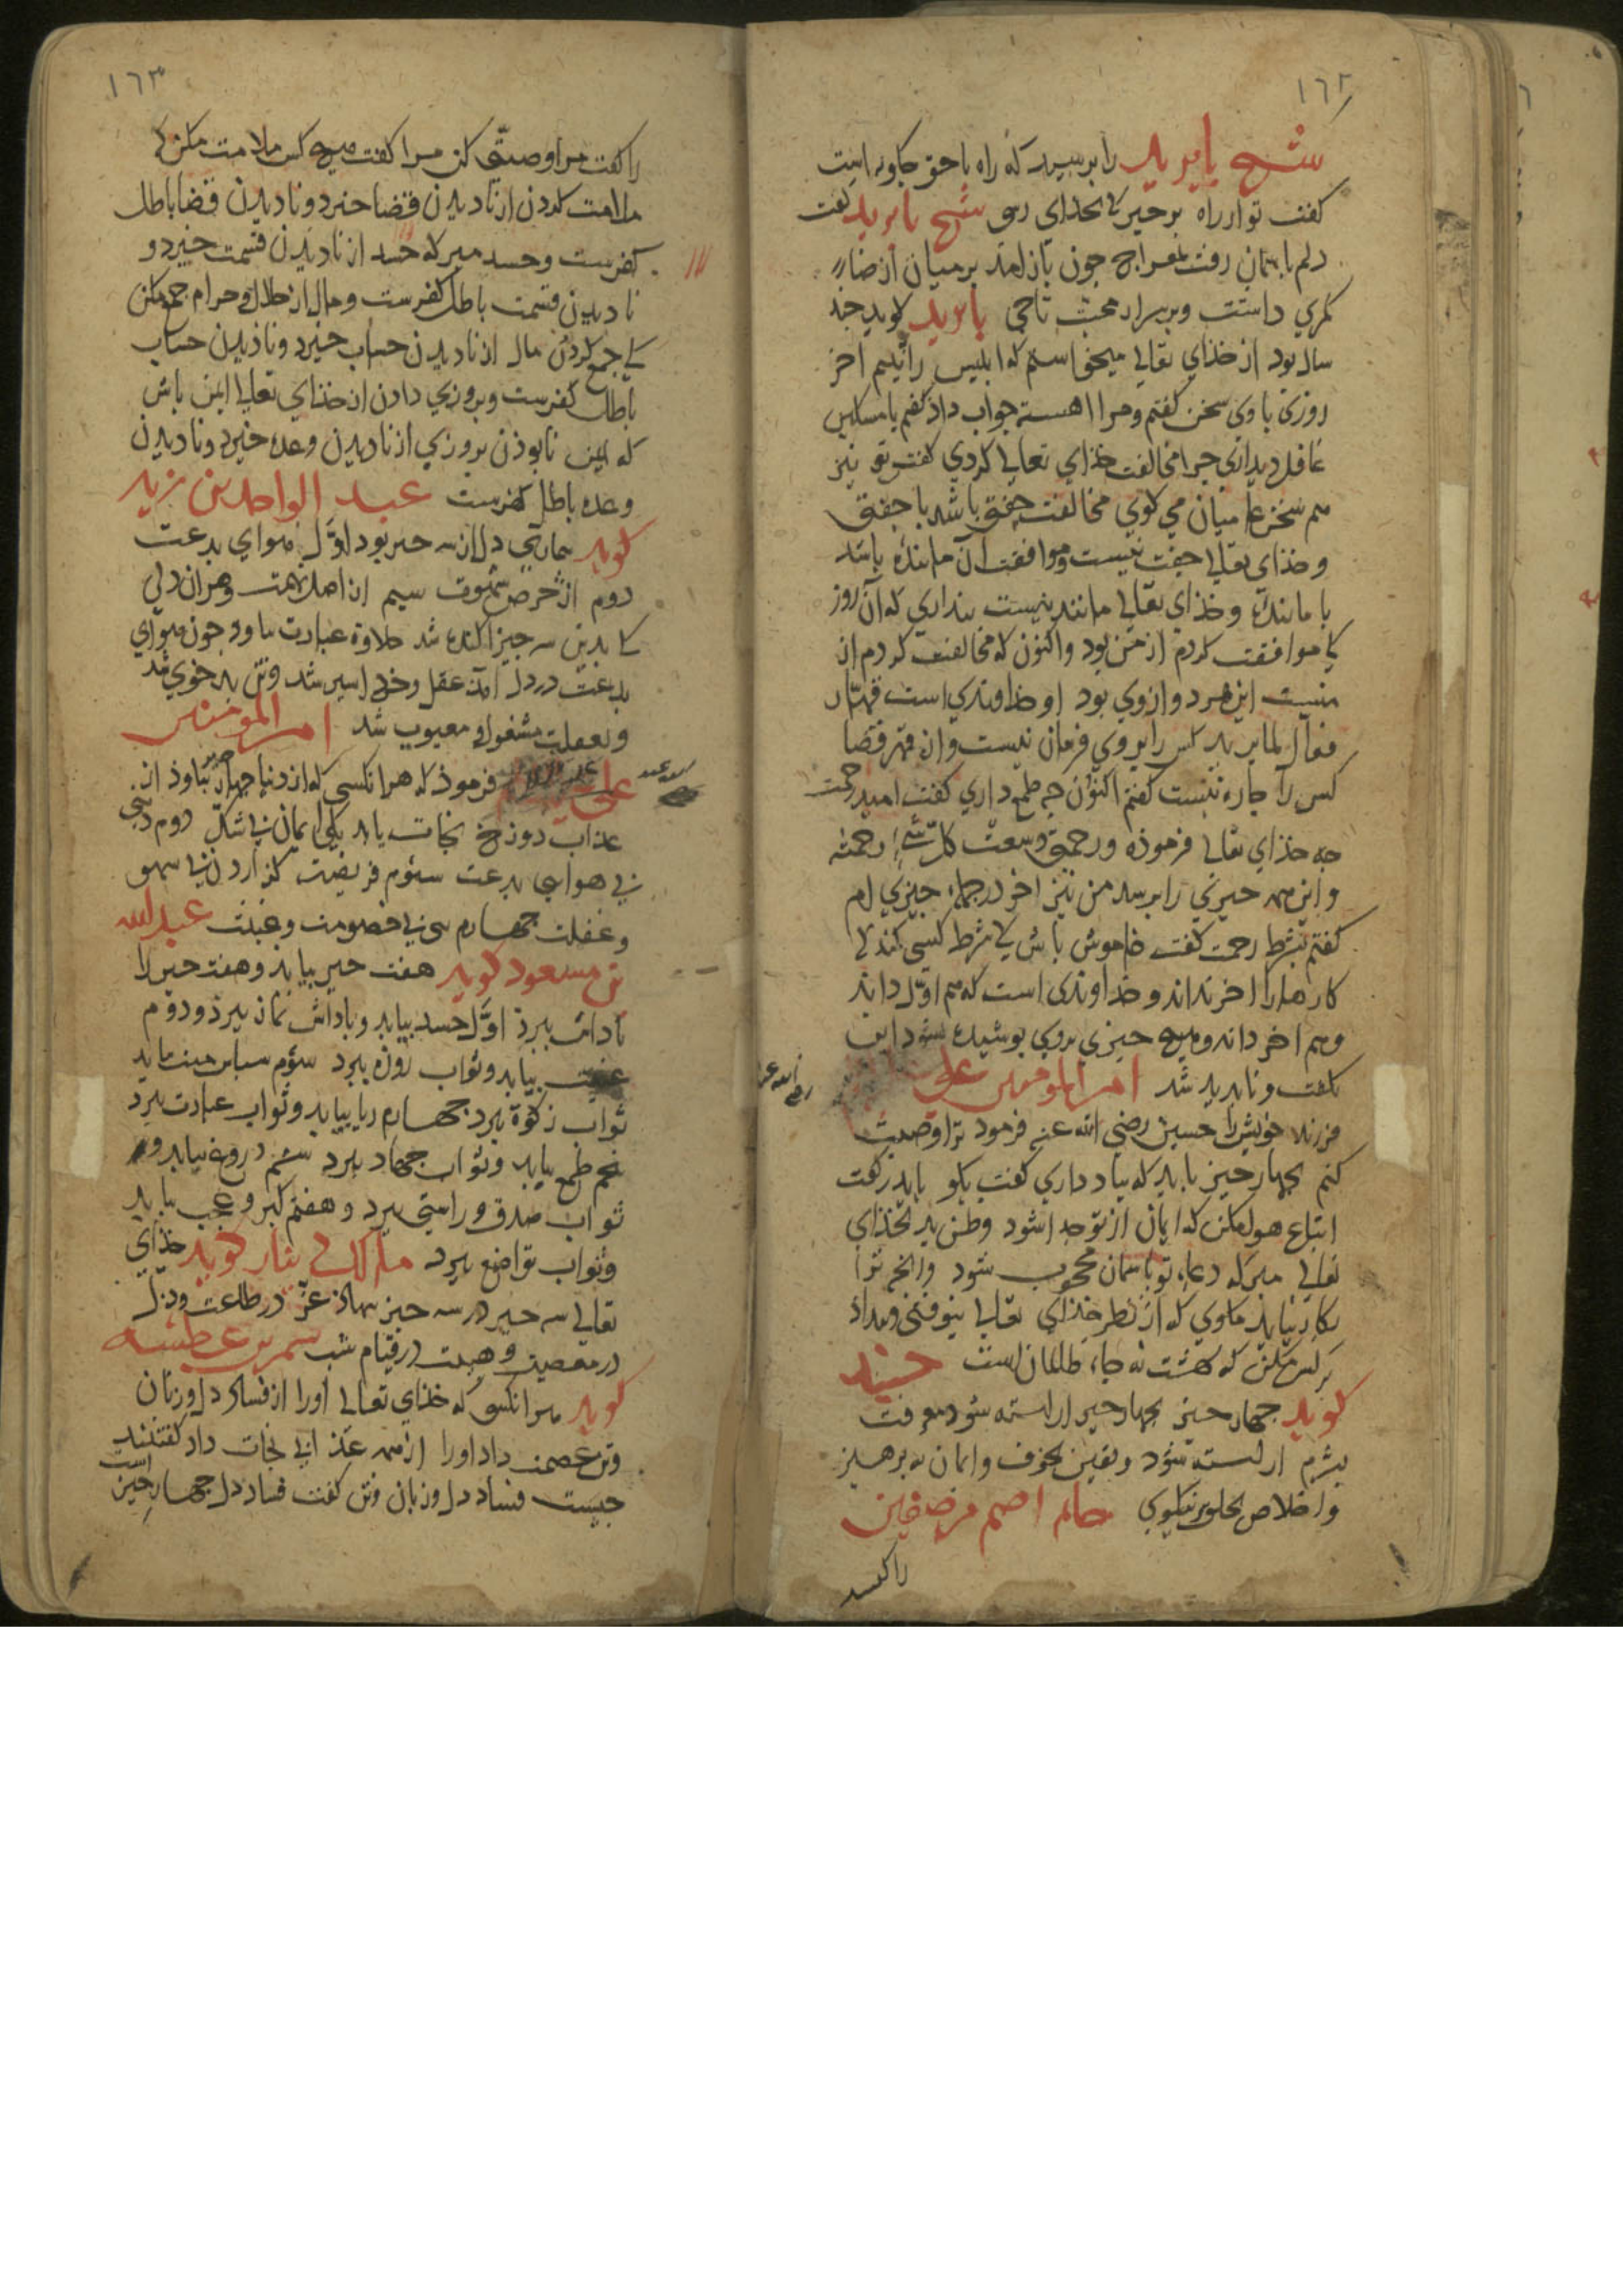 ١٦٢
شیخ بایزید را برسید که راه باحق جکونه است
کفت تو از راه برخیز کی بخدای رسی شیخ بایزید کفت
دلم بآسمان رفت بمعراج جون باز آمد بر میان از رضاء
کمری داشت و بر سر از محبت تاجی بایزید کوید جند
سال بود از خذای تعالی میخواستم که ابلیس را بینم آخر
روزی با وی سخن کفتم و مرا آهسته جواب داذ کفتم یا مسکین
عاقل دیدار جرا مخالفت خذای تعالی کردی کفت تو نیز
هم سخن عامیان می کوی مخالفت جفتی باشد با جفتی
و خذای تعالی جفت نیست و موافقت آن ماننده باشد
با ماننده و خذای تعالی مانند نیست بنداری که آن روز
کی موافقت کردم از من بود و اکنون که مخالفت کردم از
منست این هر دو از وی بود او خداوندی است قهّار
فعال لما یرید کس را بر وی فرمان نیست و از قهر قضا
کس را جاره نیست کفتم اکنون جه طمع داری کفت امید رحمت
جه خذای تعالی فرموذه ورحمتی وسعت کلّ شیٔ رحمتش
و این همه جیزی را برسد من نیز آخر در جمله جیزی ام
کفتم بشرط رحمت کفت خاموش باش کی شرط کسی کند کی
کارها را آخر نداند و خداوندی است که هم اول داند
و هم آخر داند و هیج جیزی بر وی بوشیده نشود این
بکفت و نابدید شد امیر المومنین علی
رضی الله عنه
فرزند خویش را حسین رضی الله عنه فرمود ترا وصیت
کنم بجهار جیز باید که یاد داری کفت بکو یا بدر کفت
اتباع هوا مکن که ایمان از تو جدا شود وظن بد بخذای
تعالی مبر که دعاء تو بآسمان محجوب شود وانج ترا
بکار نیاید مکوی که از نظر خذای تعالی بیوفتی و بیداد
بر کس مکن که بهشت نه جاء ظالمان است جنید
کوید جهار جیز بجهار جیز اراسته شود معرفت
بشرم اراسته شود و یقین بخوف و ایمان به برهیز
و اخلاص بخلق نیکوی حاتم اصم مر ضعیفین
را کفت
١٦٣
را کفت مرا وصیتی کن مرا کفت هیج کس ملامت مکن کی
ملامت کردن از نادیدن قضا خیزد و نادیدن قضا باطل
کفرست و حسد مبر که حسد از نادیدن قسمت خیزد و
نادیدن قسمت باطل کفرست و مال از حلال و حرام جمع مکن
کی جمع کردن مال از نادیدن حساب خیزد و نادیدن حساب
باطل کفرست و بروزی دادن از خذای تعالی ایمن باش
که ایمن نابوذن بروزی از نادیدن وعده خیزد و نادیدن
وعده باطل کفرست عبد الواحد بن زید
کوید بیماری دل از سه جیز بود اول هوای بدعت
دوم از حرص شهوت سیم از اصل تهمت و هر آن دلی
کا بدین سه جیز آکنده شد حلاوة عبادت نیاود جون هوای
بدعت در دل آمد عقل و خرد اسیر شد و تن بد خوی شد
و بغفلت مشغول و معیوب شد امیر المومنین
علی فرموذ که هر انکسی که از دنیا جهار جیز بباوذ از
عذاب دوزخ نجات یابد یکی ایمان بی شک دوم دینی
بی هوای بدعت سئوم فریضت کزاردن بی سهو
و غفلت جهارم بی خصومت و غیبت عبد الله
بن مسعود کوید هفت جیز بیاید و هفت جیز را
باداش ببرذ اوّل حسد بیاید و باداش نماز ببرذ و دوم
غیبت بیاید و ثواب روزه ببرد سئوم سباس منت بیاید
ثواب زکوة ببرد جهارم ریا بیاید و ثواب عبادت ببرد
بنجم طمع بیاید و ثواب جهاد ببرد ششم دروغ بیاید و
ثواب صدق و راستی ببرد و هفتم کبر و عجب بیاید
و ثواب تواضع ببرد مالک دینار کوید خذای
تعالی سه جیز در سه جیز نهاد عزّ در طاعت و ذلّ
در معصیت و هیبت در قیام شب سمر بن عطیسه
کوید هر انکس که خذای تعالی اورا از فساد دل و زبان
و تن عصمت داد اورا از همه عذابی نجات داد کفتند
جیست فساد دل و زبان و تن کفت فساد دل جهار جیز است